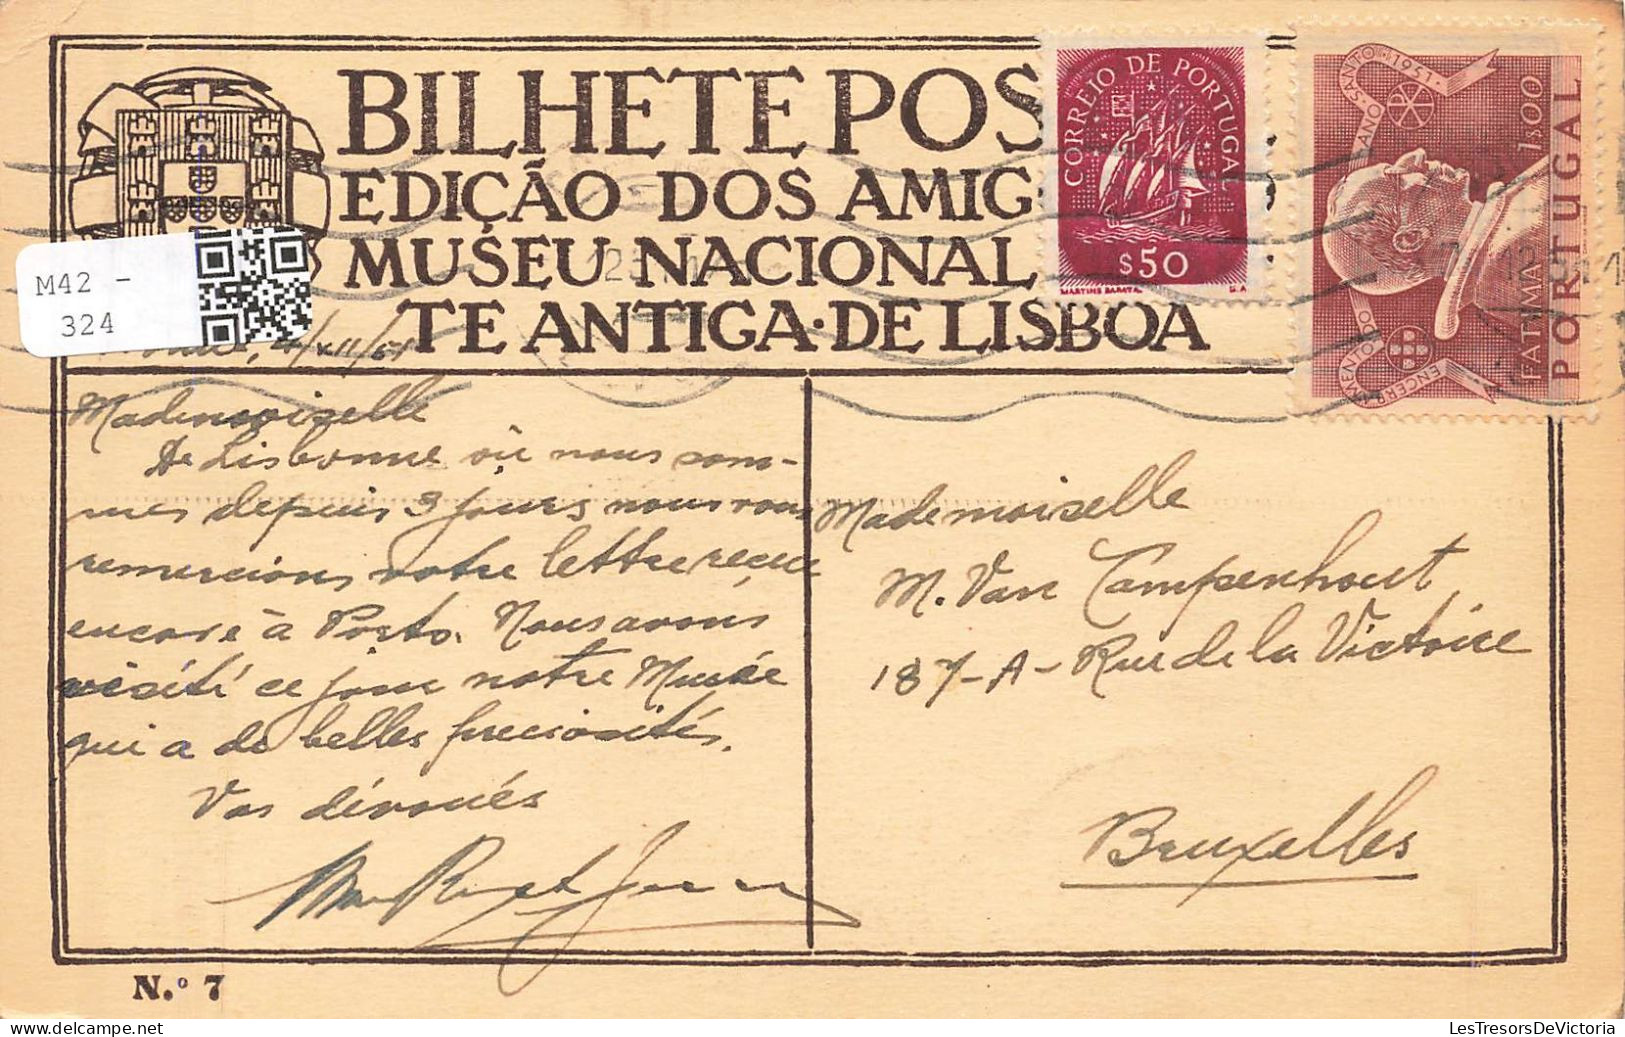 BILHETE POS
EDIÇÃO DOS AMIG
MUSEU NACIONAL
TE ANTIGA·DE LISBOA
CORREIO DE PORTUGAL
$50
MARTINS BARATA
ANO·SANTO·1951·
ENCERRAMENTO DO
1$00
FATIMA
PORTUGAL
M42 -
324
4/XII/51
Mademoiselle
De Lisbonne où nous som-
mes depuis 3 jours nous vous
remercions votre lettre reçue
encore à Porto. Nous avons
visité ce jour notre Musée
qui a de belles preciosités.
Vos dévoués
Mademoiselle
M. Van Campenhout
187-A-Rue de la Victoire
Bruxelles
N.º 7
LesTresorsDeVictoria